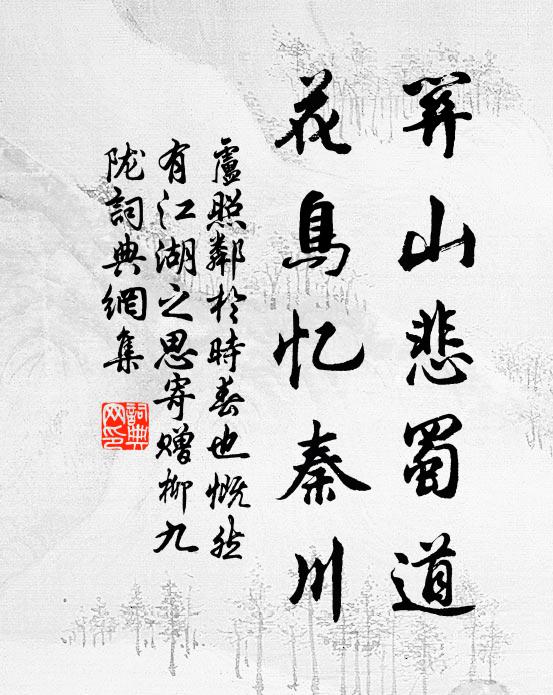 関山悲蜀道
花鳥忆秦川
盧照鄰於時春也慨然
有江湖之思寄赠柳九
陇詞典網集
詞典
网印